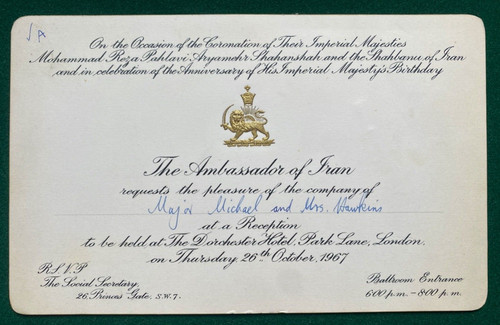 √A
On the Occasion of the Coronation of Their Imperial Majesties
Mohammad Reza Pahlavi Aryamehr Shahanshah and the Shahbanu of Iran
and in celebration of the Anniversary of His Imperial Majesty's Birthday
The Ambassador of Iran
requests the pleasure of the company of
Major Michael and Mrs. Hawkins
at a Reception
to be held at The Dorchester Hotel, Park Lane, London.
on Thursday 26th October, 1967
R.S.V.P.
The Social Secretary,
26, Princes Gate, S.W.7.
Ballroom Entrance
6.00 p.m. – 8.00 p.m.